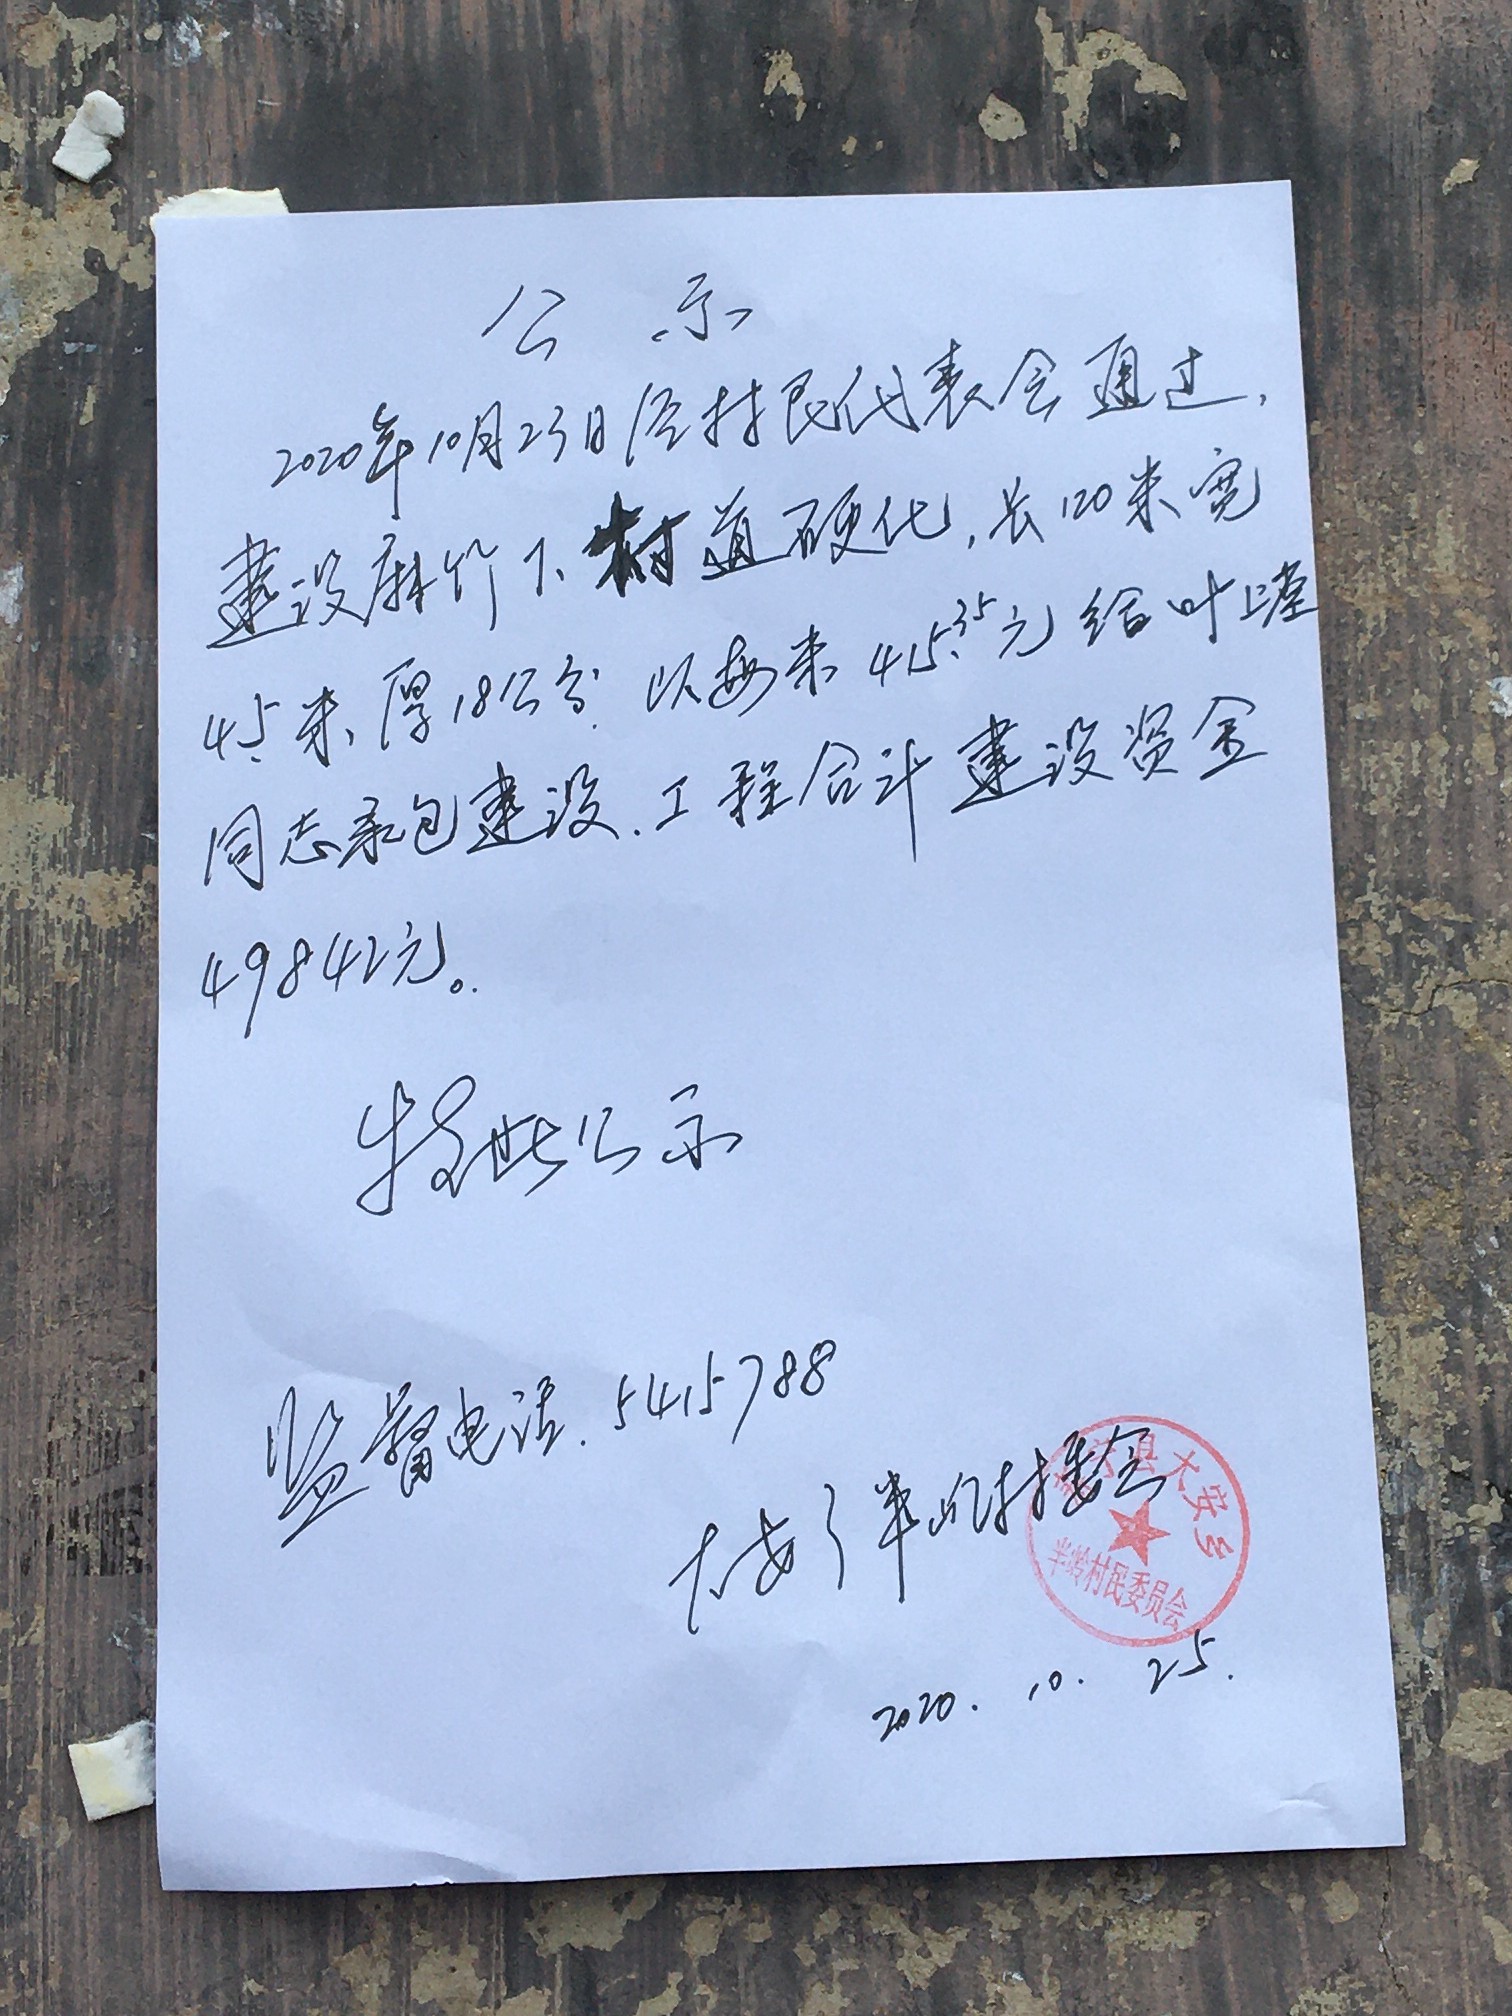 公示
2020年10月23日经村民代表会通过,
建设麻竹下村道硬化,长120米宽
4.5米、厚18公分.以每米415.35元给叶上莹
同志承包建设.工程合计建设资金
49842元。
特此公示
监督电话.5415788
大安乡半岭村委会
县大安乡
半岭村民委员会
2020.10.25.